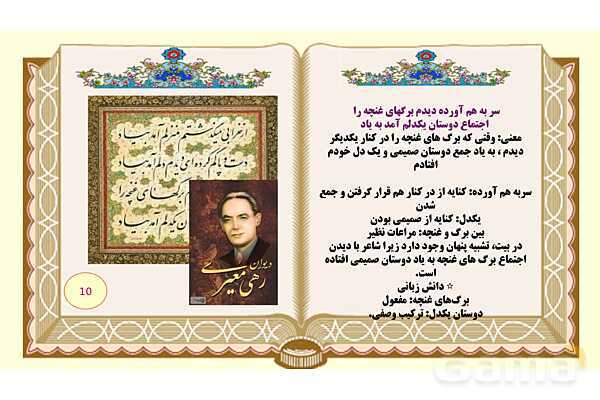 سر به هم آورده دیدم برگهای غنچه را
اجتماع دوستان یکدلم آمد به یاد
معنی: وقتی که برگ های غنچه را در کنار یکدیگر
دیدم ، به یاد جمع دوستان صمیمی و یک دل خودم
افتادم
سربه هم آورده: کنایه از در کنار هم قرار گرفتن و جمع
شدن
یکدل: کنایه از صمیمی بودن
بین برگ و غنچه: مراعات نظیر
در بیت، تشبیه پنهان وجود دارد زیرا شاعر با دیدن
اجتماع برگ های غنچه به یاد دوستان صمیمی افتاده
است.
☆ دانش زبانی
برگ‌های غنچه: مفعول
دوستان یکدل: ترکیب وصفی.
دیوان
رهی معیری
10
Gama